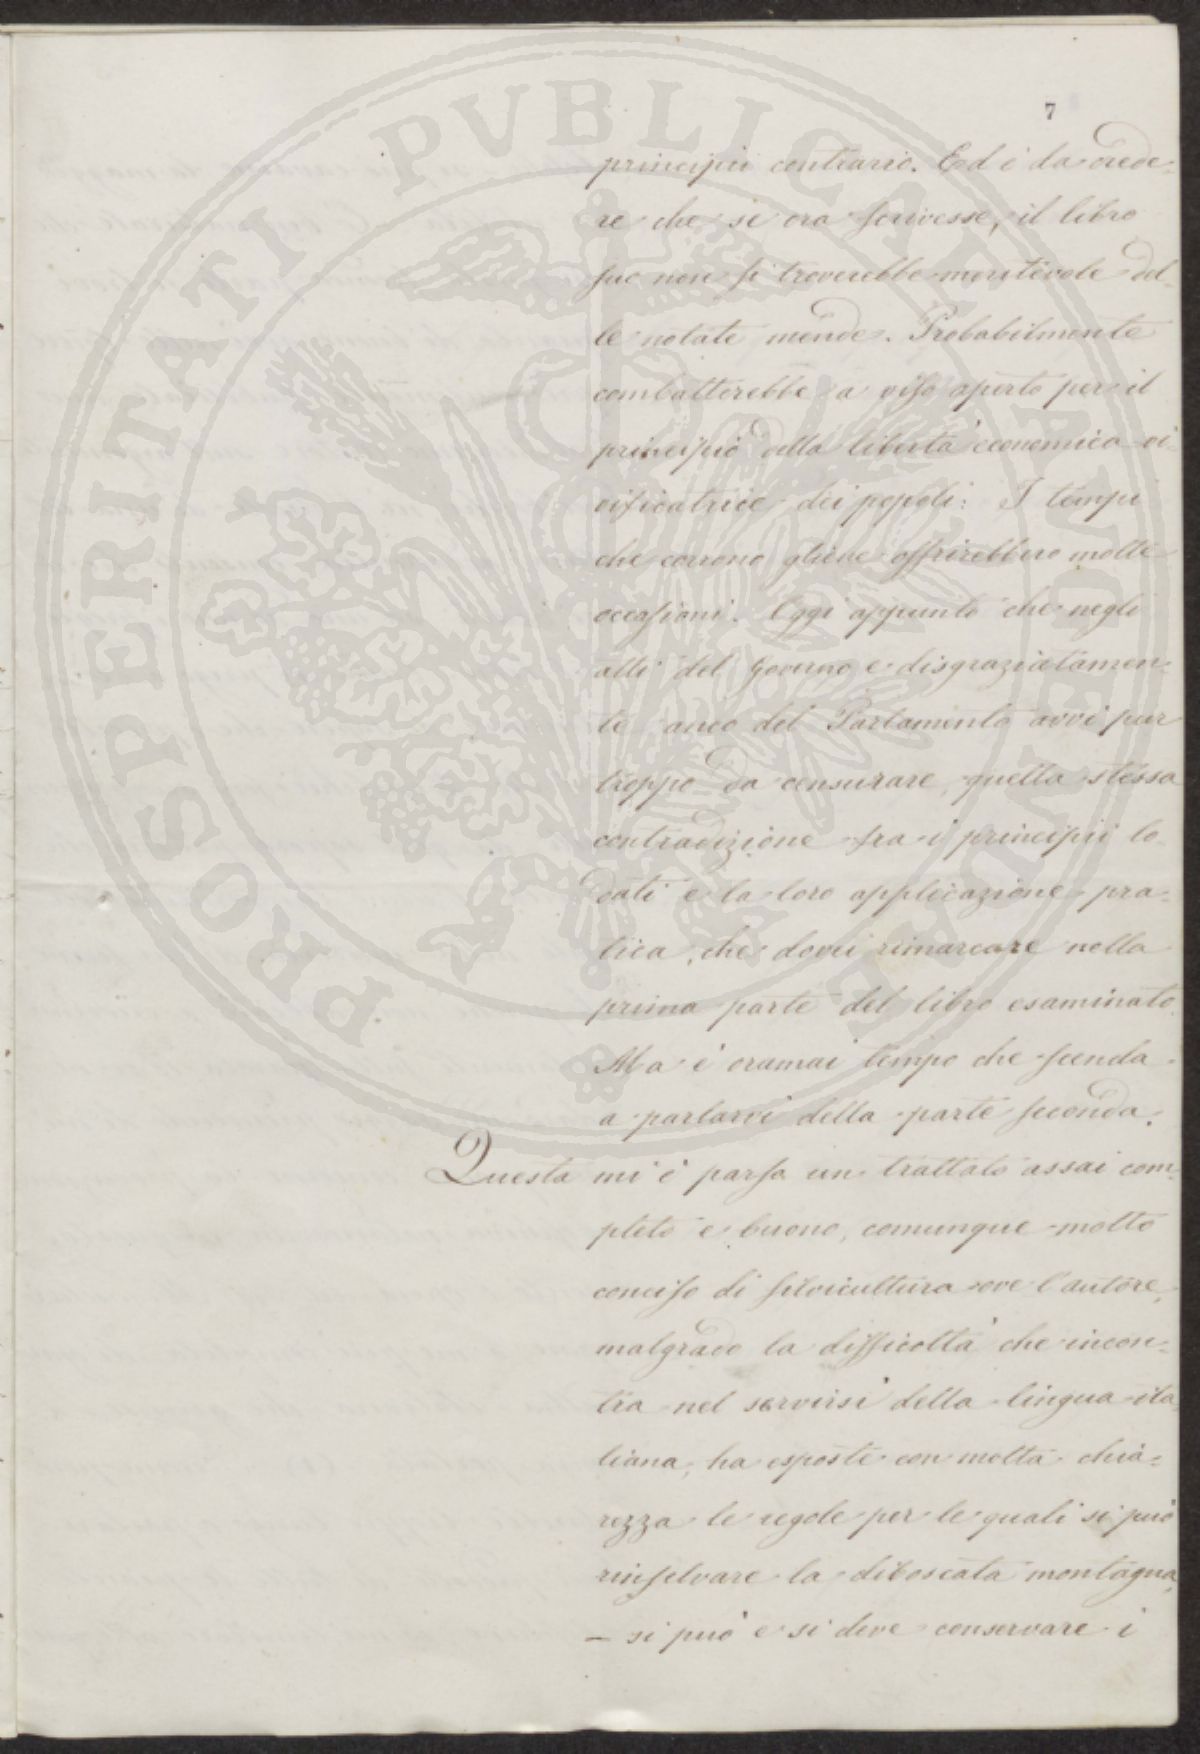 7
principii contrario. Ed è da crede-
re che se ora scrivesse, il libro
suo non si troverebbe meritevole del-
le notate mende. Probabilmente
combatterebbe a viso aperto per il
principio della libertà economica vi-
vificatrice dei popoli: I tempi
che corrono gliene offrirebbero molte
occasioni. Oggi appunto che negli
atti del Governo e disgraziatamen-
te anco del Parlamento avvi pur
troppo da censurare, quella stessa
contradizione fra i principii lo
dati e la loro applicazione pra-
tica, che dovei rimarcare nella
prima parte del libro esaminato.
Ma è oramai tempo che scenda
a parlarvi della parte seconda.
Questa mi è parsa un trattato assai com-
pleto e buono, comunque molto
conciso di silvicultura ove l'autore,
malgrado la difficoltà che incon-
tra nel servirsi della lingua ita
liana, ha esposte con molta chia-
rezza le regole per le quali si può
rinselvare la diboscata montagna,
– si può e si deve conservare i
PROSPERITATI PVBLICAE AVGENDAE